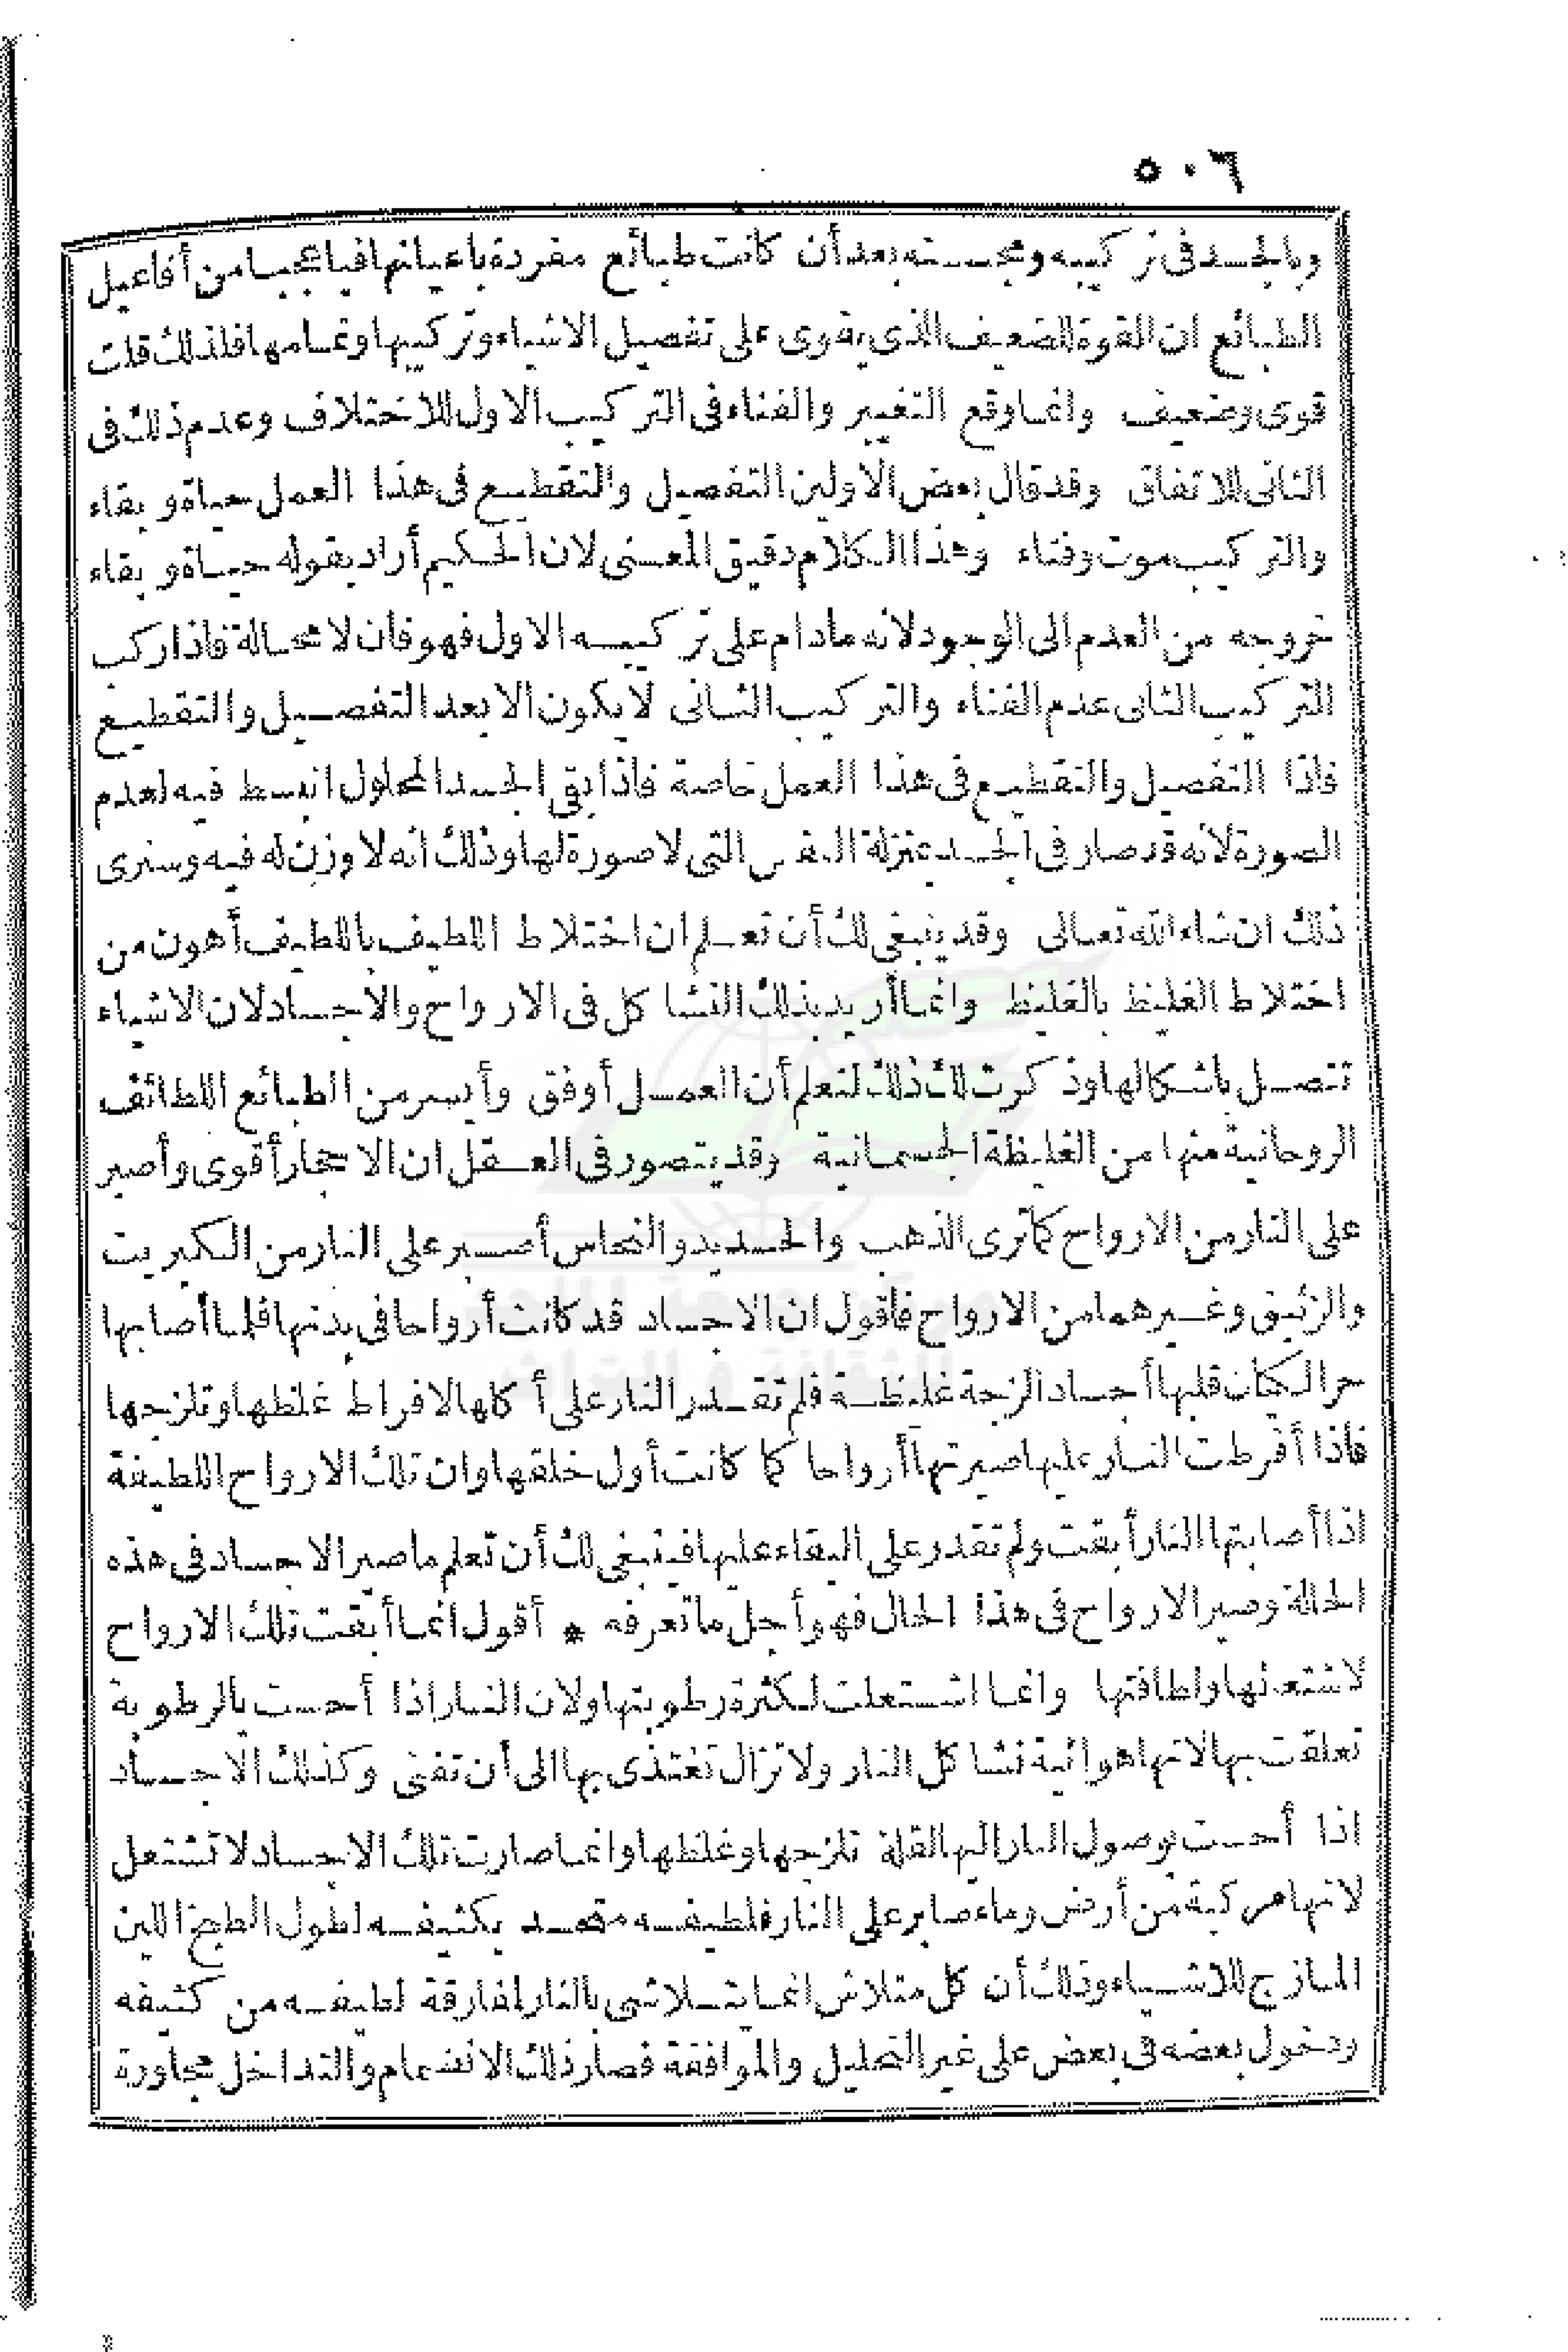 ٥٠٦
وبالجسد في تركيبه ومجسته بعد أن كانت طبائع مفردة باعيانها فيا عجبا من أفاعيل
الطبائع ان القوة للضعيف الذي يقوى على تفصيل الاشياء وتركيبها وتمامها فلذلك قلت
قوى وضعيف وانما وقع التغيير والفناء في التركيب الاول للاختلاف وعدم ذلك في
الثاني للاتفاق وقد قال بعض الاولين التفصيل والتقطيع في هذا العمل حياة وبقاء
والتركيب موت وفناء وهذا الكلام دقيق المعنى لان الحكيم أراد بقوله حياة وبقاء
خروجه من العدم الى الوجود لانه مادام على تركيبه الاول فهو فان لا محالة فاذا ركب
التركيب الثاني عدم الفناء والتركيب الثاني لا يكون الا بعد التفصيل والتقطيع
فاذا التفصيل والتقطيع في هذا العمل خاصة فاذا بقى الجسد المحلول انبسط فيه لعدم
الصورة لانه قد صار في الجسد بمنزلة النفس التي لا صورة لها وذلك أنه لا وزن له فيه وسترى
ذلك ان شاء الله تعالى وقد ينبغي لك أن تعلم ان اختلاط اللطيف باللطيف أهون من
اختلاط الغليظ بالغليظ وانما أريد بذلك التشاكل في الارواح والاجساد لان الاشياء
تتصل باشكالها وذكرت لك ذلك لتعلم أن العمل أوفق وأيسر من الطبائع اللطائف
الروحانية منها من الغليظة الجسمانية وقد يتصور في العقل ان الاحجار أقوى وأصبر
على النار من الارواح كما ترى الذهب والحديد والنحاس أصبر على النار من الكبريت
والزئبق وغيرهما من الارواح فأقول ان الاجساد قد كانت أرواحا في بدنها فلما أصابها
حر الكيان قلبها أجسادا لزجة غليظة فلم تقدر النار على أكلها لافراط غلظها وتلزجها
فاذا أفرطت النار عليها صيرتها أرواحا كما كانت أول خلقها وان تلك الارواح اللطيفة
اذا أصابتها النار أبقت ولم تقدر على البقاء عليها فينبغي لك أن تعلم ما صير الاجساد في هذه
الحالة وصير الارواح في هذا الحال فهو أجل ما تعرفه * أقول انما أبقت تلك الارواح
لاشتعالها ولطافتها وانما اشتعلت لكثرة رطوبتها ولان النار اذا أحست بالرطوبة
تعلقت بها لانها هوائية تشاكل النار ولا تزال تغتذى بها الى أن تفنى وكذلك الاجساد
اذا أحست بوصول النار اليها لقلة تلزجها وغلظها وانما صارت تلك الاجساد لا تشتعل
لانها مركبة من أرض وماء صابر على النار فلطيفه متحد بكثيفه لطول الطبخ اللين
المازج للاشياء وذلك أن كل متلاش انما يتلاشى بالنار لمفارقة لطيفه من كثيفه
ودخول بعضه في بعض على غير التحليل والموافقة فصار ذلك الانضمام والتداخل مجاورة